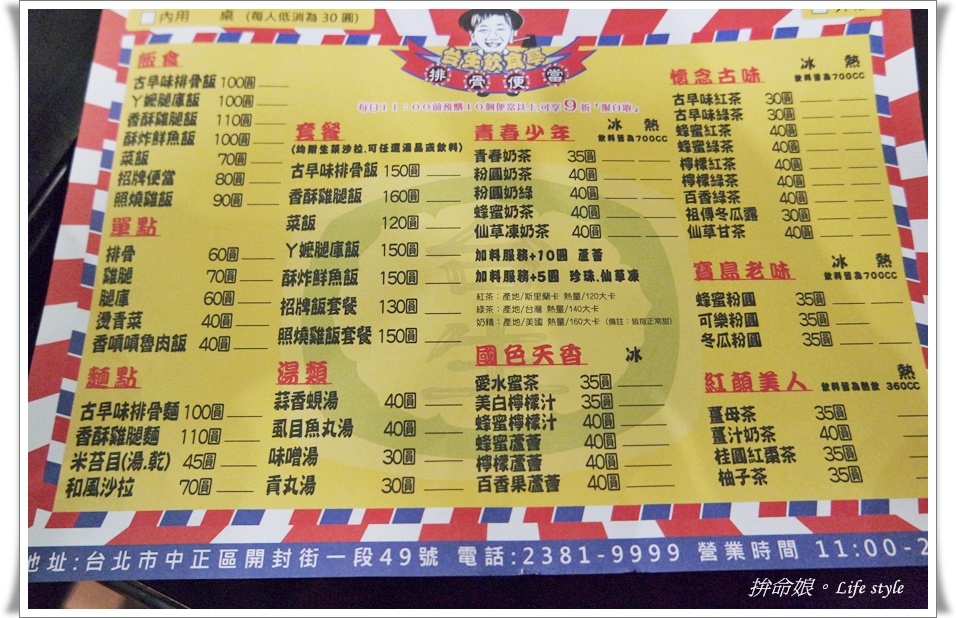 內用 桌 (每人低消為30圓)
台生飲食亭
排骨便當
每日11:00前預購10個便當以上,可享9折「限自取」
飯食
古早味排骨飯 100圓
丫嬤腿庫飯 100圓
香酥雞腿飯 110圓
酥炸鮮魚飯 100圓
菜飯 70圓
招牌便當 80圓
照燒雞飯 90圓
單點
排骨 60圓
雞腿 70圓
腿庫 60圓
燙青菜 40圓
香噴噴魯肉飯 40圓
麵點
古早味排骨麵 100圓
香酥雞腿麵 110圓
米苔目(湯.乾) 45圓
和風沙拉 70圓
套餐
(均附生菜沙拉,可任選湯品或飲料)
古早味排骨飯 150圓
香酥雞腿飯 160圓
菜飯 120圓
丫嬤腿庫飯 150圓
酥炸鮮魚飯 150圓
招牌飯套餐 130圓
照燒雞飯套餐 150圓
湯類
蒜香蜆湯 40圓
虱目魚丸湯 40圓
味噌湯 30圓
貢丸湯 30圓
青春少年 冰 熱
飲料皆為700CC
青春奶茶 35圓
粉圓奶茶 40圓
粉圓奶綠 40圓
蜂蜜奶茶 40圓
仙草凍奶茶 40圓
加料服務+10圓 蘆薈
加料服務+5圓 珍珠.仙草凍
紅茶:產地/斯里蘭卡 熱量/120大卡
綠茶:產地/台灣 熱量/140大卡
奶精:產地/美國 熱量/160大卡 (備註:皆指正常甜)
國色天香 冰
愛水蜜茶 35圓
美白檸檬汁 35圓
蜂蜜檸檬汁 40圓
蜂蜜蘆薈 40圓
檸檬蘆薈 40圓
百香果蘆薈 40圓
懷念古味 冰 熱
飲料皆為700CC
古早味紅茶 30圓
古早味綠茶 30圓
蜂蜜紅茶 40圓
蜂蜜綠茶 40圓
檸檬紅茶 40圓
檸檬綠茶 40圓
百香綠茶 40圓
祖傳冬瓜露 30圓
仙草甘茶 40圓
寶島老味 冰 熱
飲料皆為700CC
蜂蜜粉圓 35圓
可樂粉圓 35圓
冬瓜粉圓 35圓
紅顏美人 熱
飲料皆為熱飲 360CC
薑母茶 35圓
薑汁奶茶 40圓
桂圓紅棗茶 35圓
柚子茶 35圓
地址:台北市中正區開封街一段49號 電話:2381-9999 營業時間 11:00-2
拚命娘。Life style